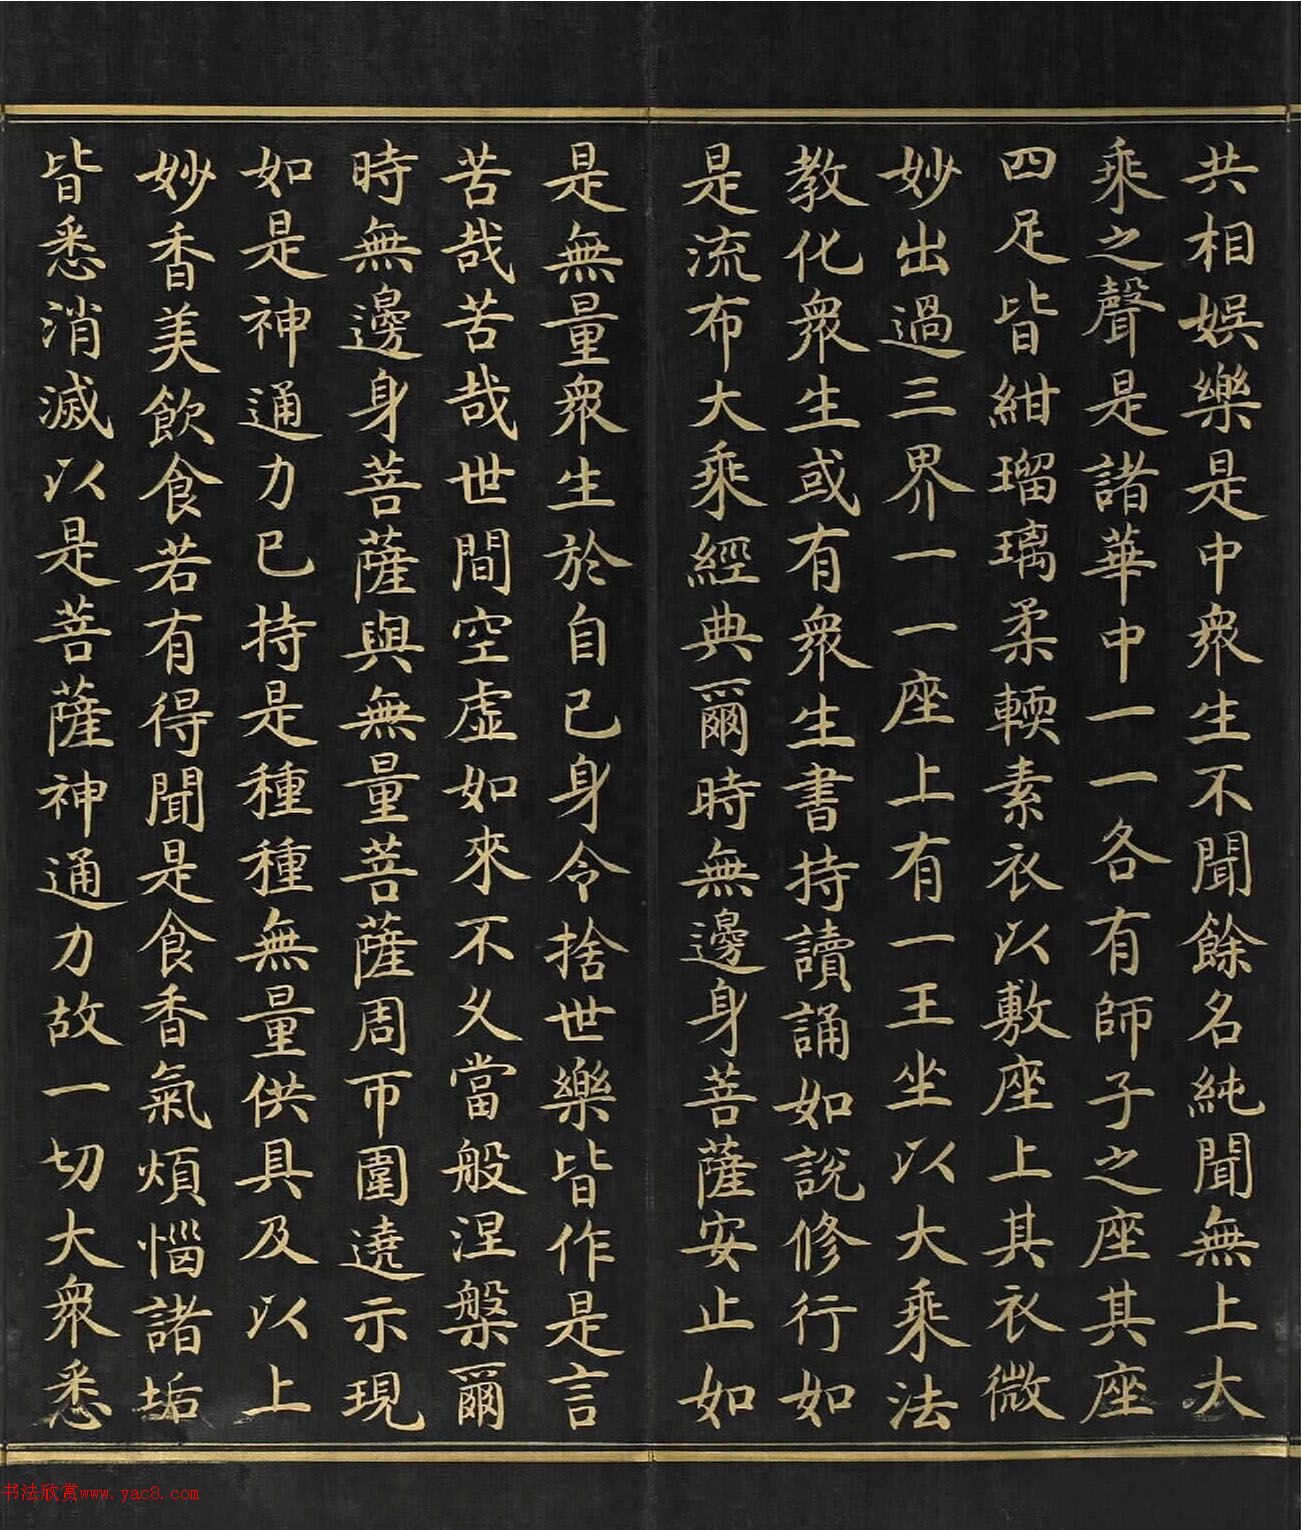 共相娛樂是中衆生不聞餘名純聞無上大
乘之聲是諸華中一一各有師子之座其座
四足皆紺瑠璃柔輭素衣以敷座上其衣微
妙出過三界一一座上有一王坐以大乘法
教化衆生或有衆生書持讀誦如說修行如
是流布大乘經典爾時無邊身菩薩安止如
是無量衆生於自己身令捨世樂皆作是言
苦哉苦哉世間空虛如來不久當般涅槃爾
時無邊身菩薩與無量菩薩周帀圍遶示現
如是神通力已持是種種無量供具及以上
妙香美飲食若有得聞是食香氣煩惱諸垢
皆悉消滅以是菩薩神通力故一切大衆悉
书法欣赏www.yac8.com